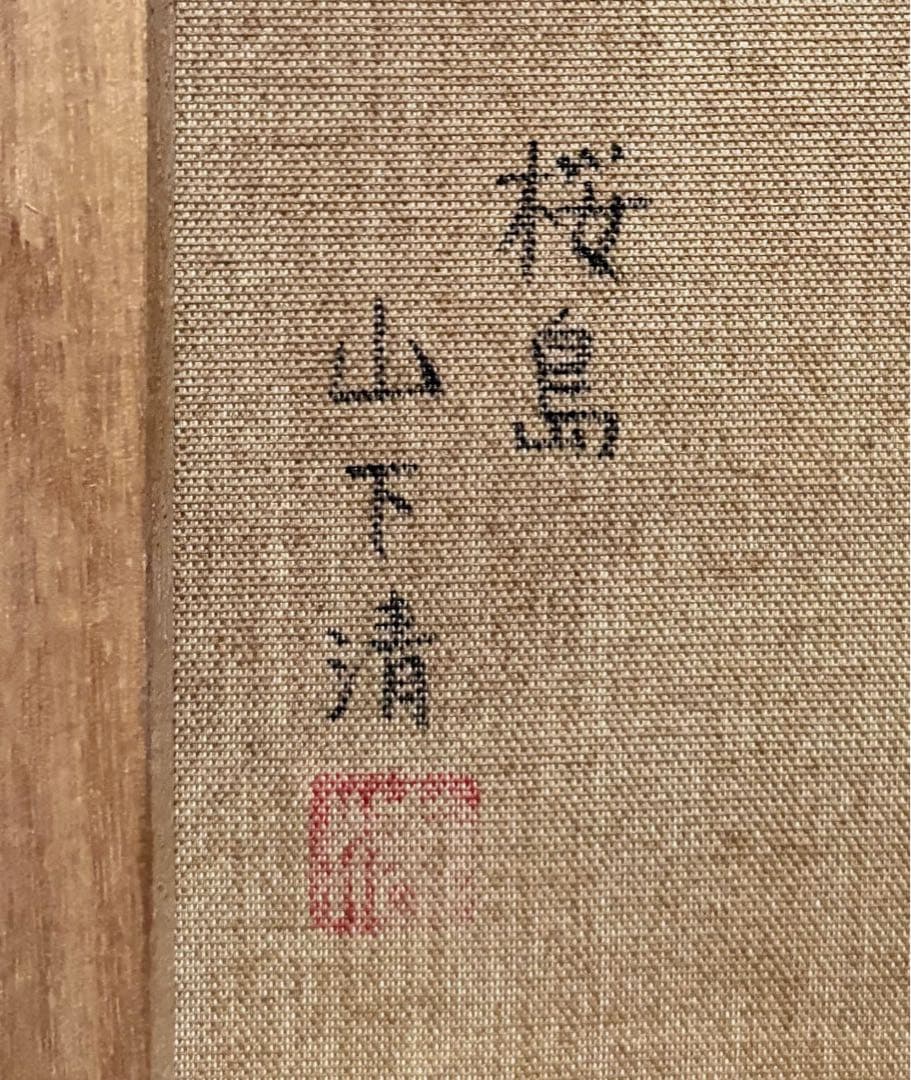 桜島
山下清